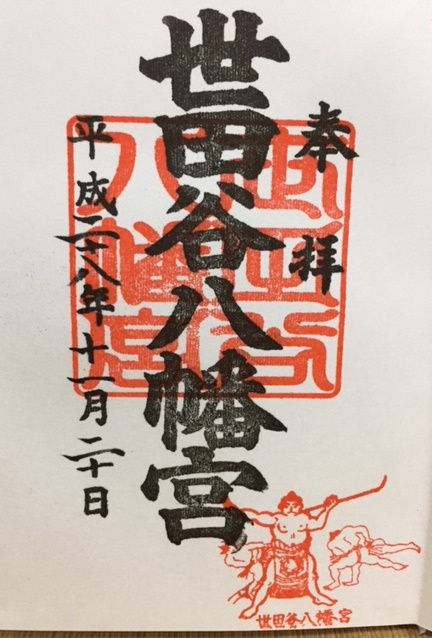 奉拝
世田谷八幡宮
世田谷
八幡宮
平成二十八年十一月二十日
世田谷八幡宮